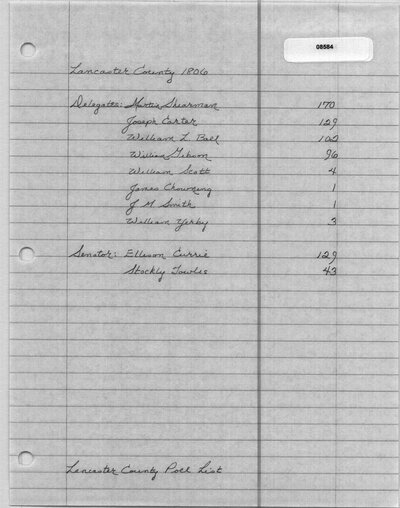 08584
Lancaster County 1806
Delegates: Martin Shearman 170
Joseph Carter 129
William L. Ball 102
William Gibson 96
William Scott 4
James Chowning 1
J M Smith 1
William Yerby 3
Senator: Ellison Currie 129
Stockly Towles 43
Lancaster County Poll List